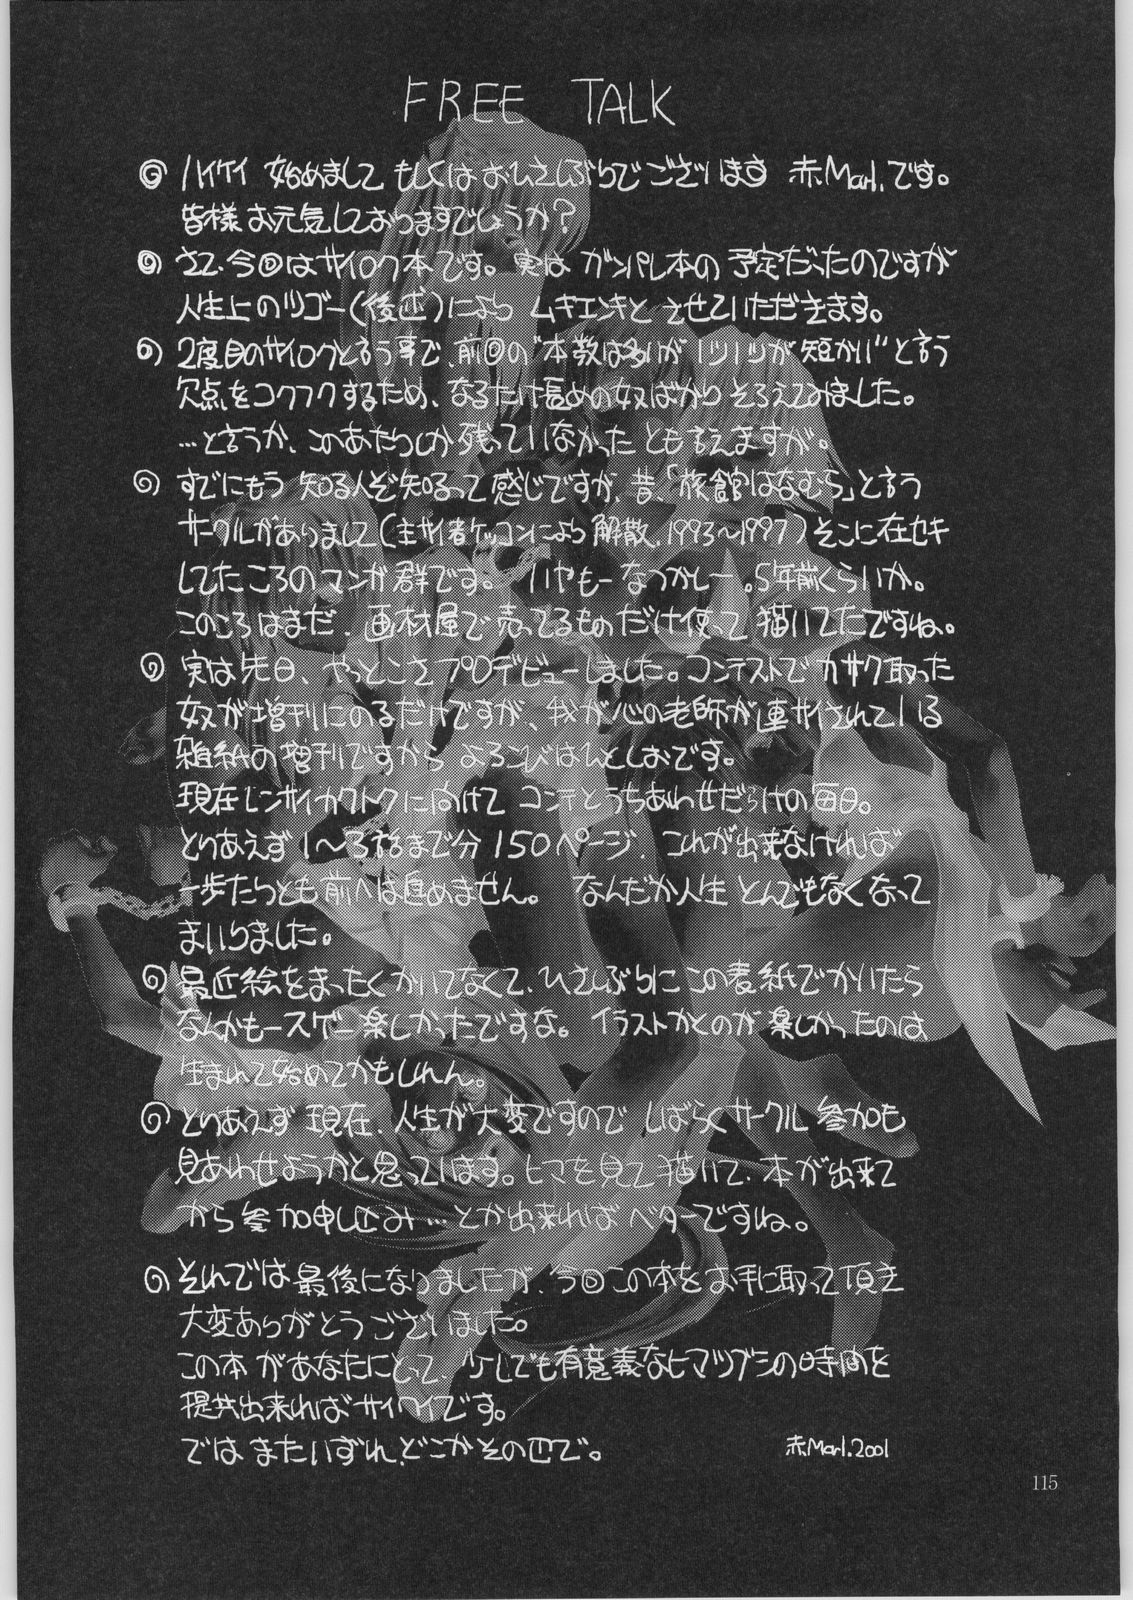 FREE TALK
ハイケイ 始めまして もしくはおひさしぶりでございます 赤Marl.です。
皆様お元気しておりますでしょうか?
さて、今回はサイロク本です。実は ガンパレ本の予定だったのですが
人生上のツゴー(後述)により ムキエンキと させていただきます。
2度目のサイロクと言う事で、前回の"本数は多いが1ツ1ツが短かい"と言う
欠点をコクフクするため、なるたけ長めの奴ばかりそろえてみました。
…と言うか、このあたりしか残っていなかったとも言えますが。
すでにもう 知る人ぞ知るって感じですが、昔、「旅館はなむら」と言う
サークルがありまして(主サイ者ケッコンにより解散、1993〜1997)そこに在セキ
してたころのマンガ群です。 いやもーなつかしー。5年前くらいか。
このころはまだ、画材屋で売ってるものだけ使って描いてたですね。
実は先日、やっとこさプロデビューしました。コンテストでカサク取った
奴が増刊にのるだけですが、我が心の老師が連サイされている
雑紙の増刊ですから よろこびはんとしおです。
現在レンサイカクトクに向けて コンテとうちあわせだらけの毎日。
とりあえず1〜3話まで分150ページ、これが出来なければ
一歩たりとも前へは進めません。 なんだか人生とんでもなくなって
まいりました。
最近絵をまったくかいてなくて、ひさしぶりにこの表紙でかいたら
なんかもースゲー楽しかったですな。 イラストかくのが楽しかったのは
生まれて始めてかもしれん。
とりあえず 現在、人生が大変ですので しばらくサークル参加も
見あわせようかと思っています。ヒマを見て描いて、本が出来て
から参加申し込み…とか出来ればベターですね。
それでは最後になりましたが、今回この本をお手に取って頂き
大変ありがとうございました。
この本があなたにとって、少しでも有意義なヒマツブシの時間を
提共出来ればサイワイです。
ではまたいずれ、どこかその辺で。
赤Marl.2001
115